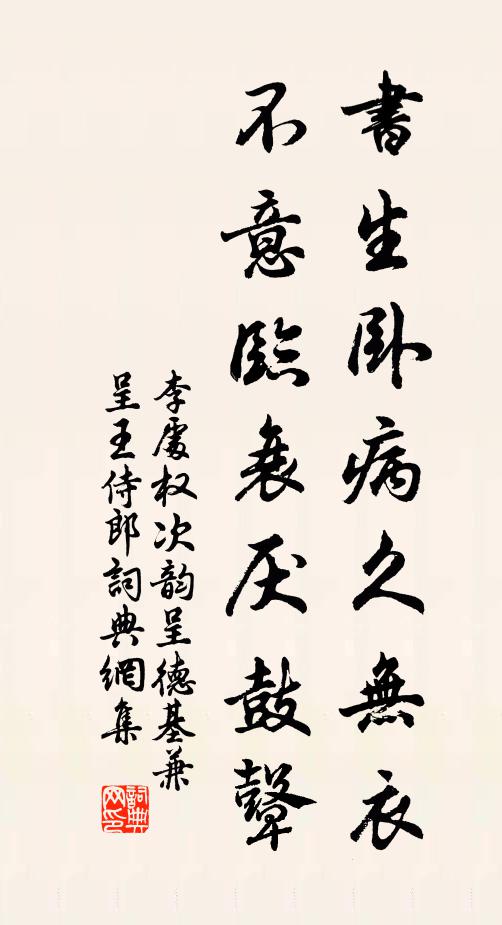 書生卧病久無衣
不意臨衰厌鼓鼙
李處权次韵呈德基兼
呈王侍郎詞典網集
詞典网印